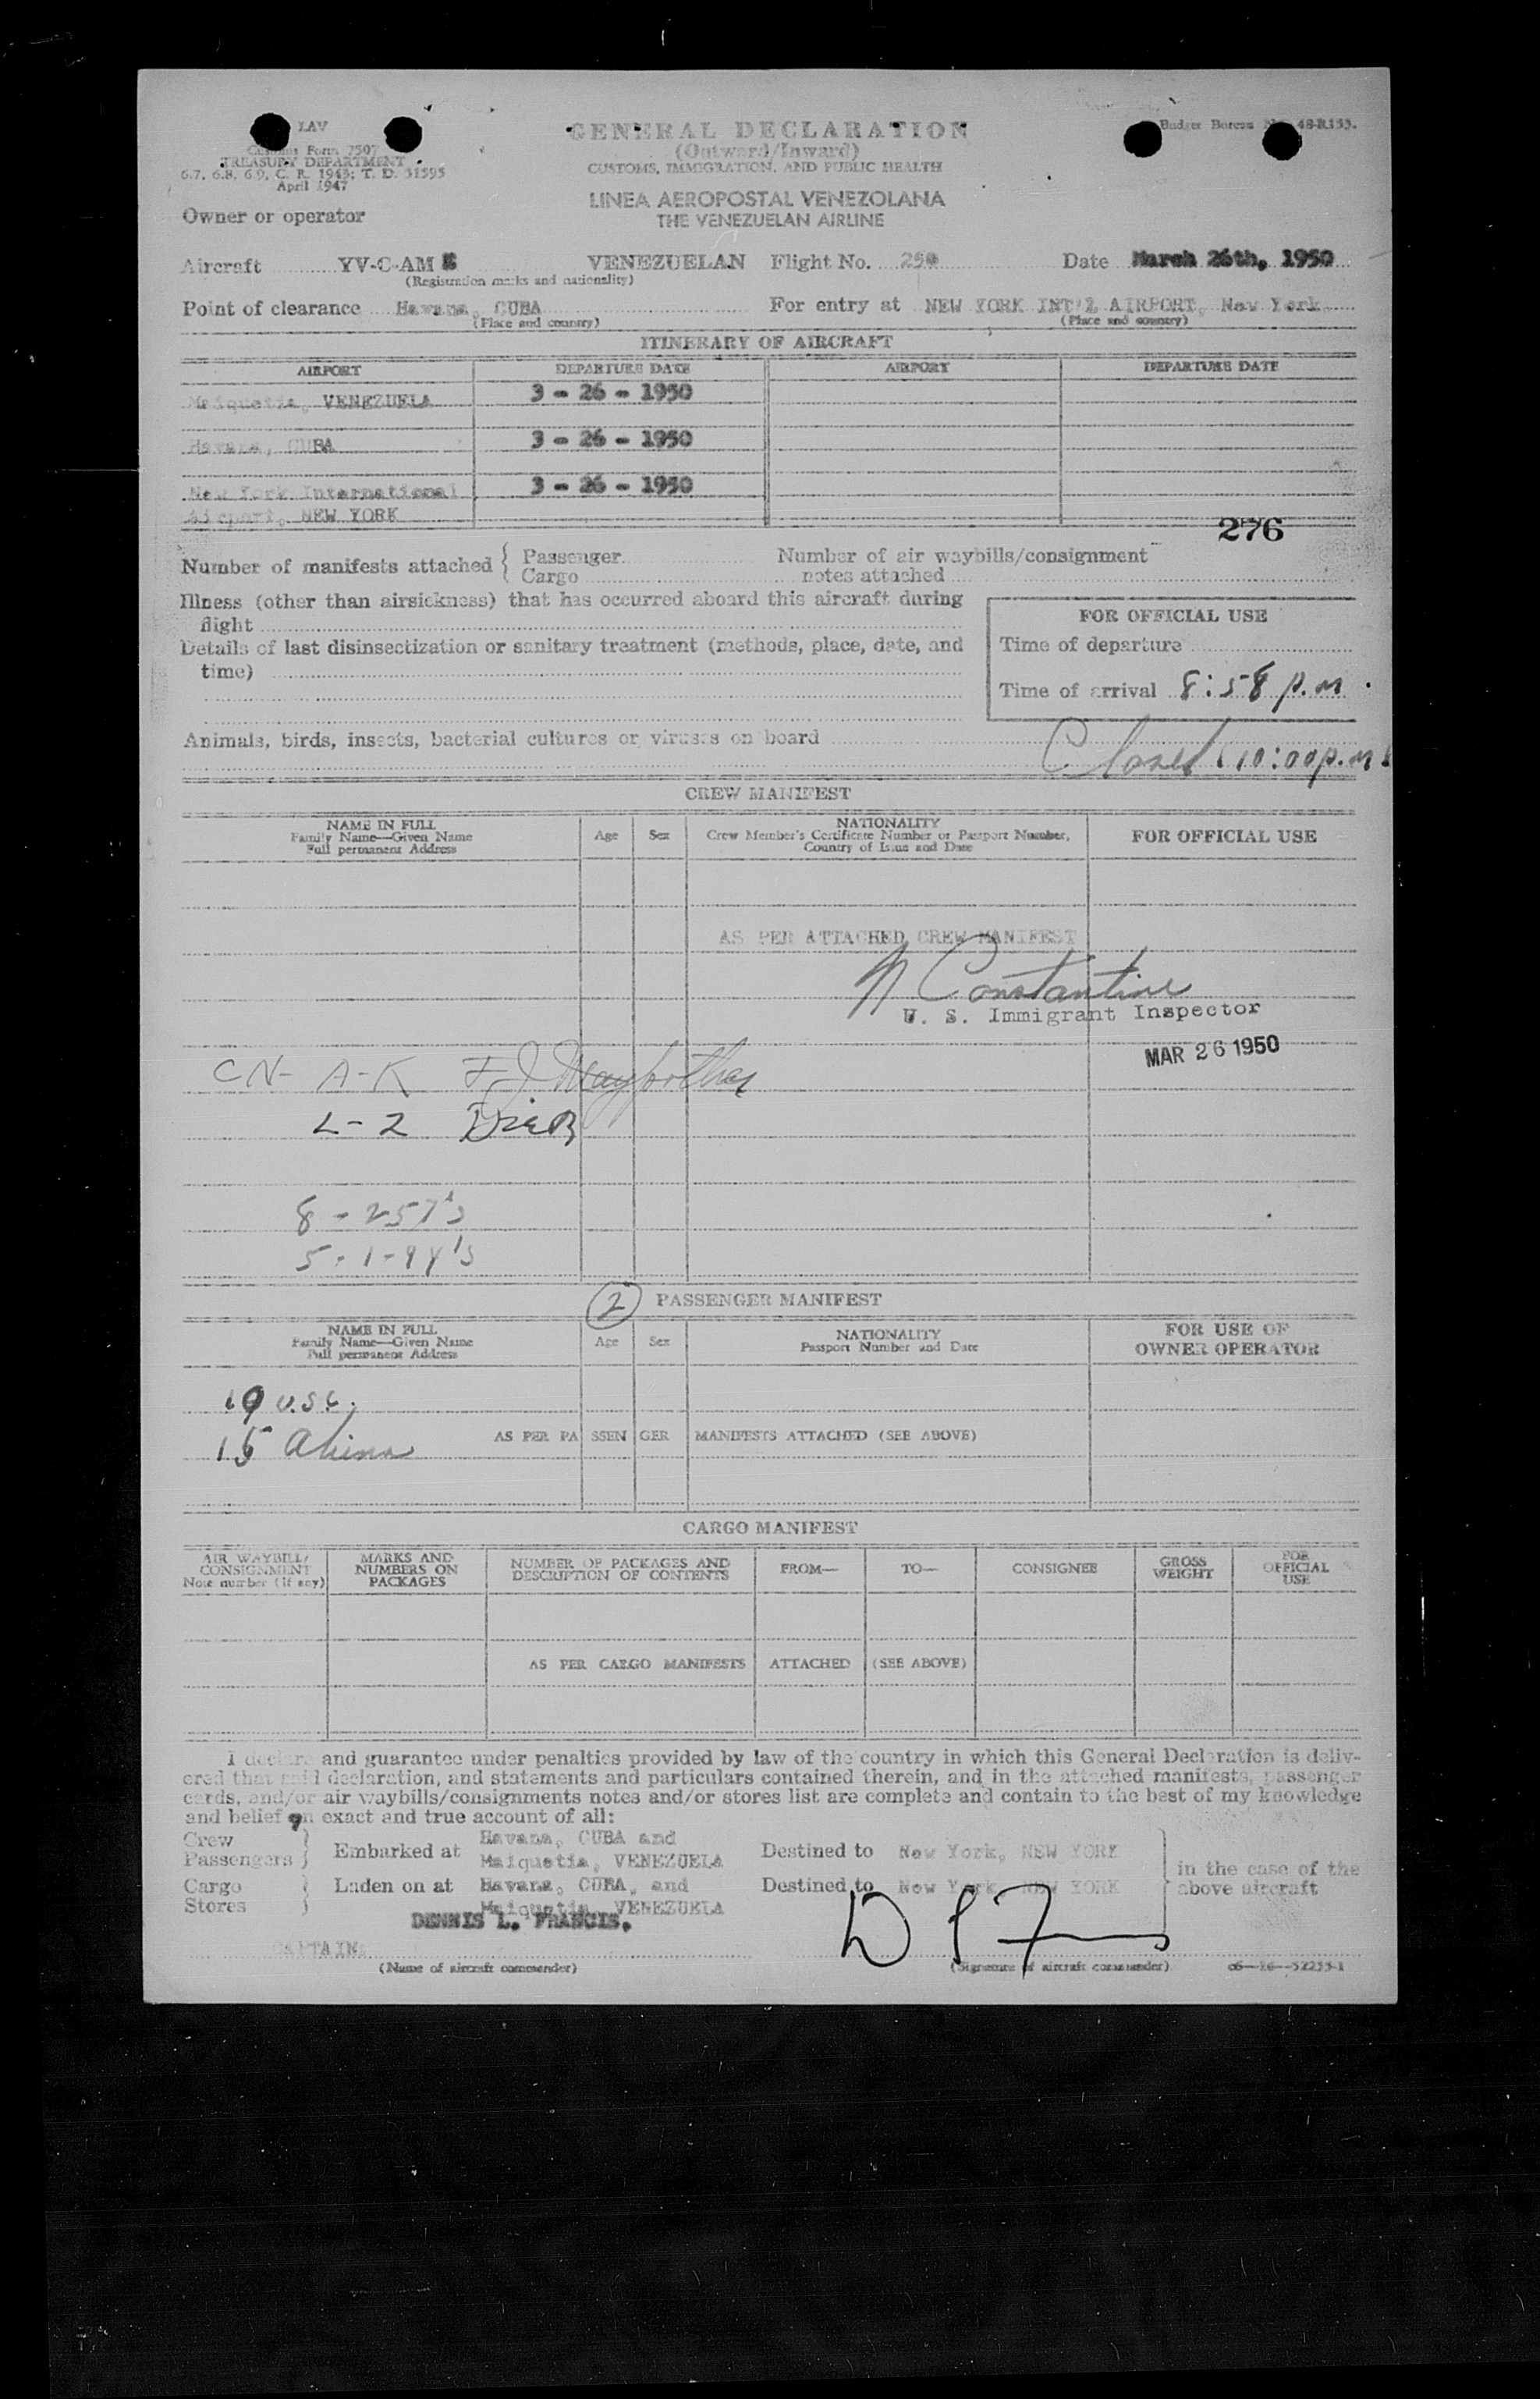 LAV
Customs Form 7507
TREASURY DEPARTMENT
6.7, 6.8, 6.9, C. R. 1943; T. D. 51595
April 1947
GENERAL DECLARATION
(Outward/Inward)
CUSTOMS, IMMIGRATION, AND PUBLIC HEALTH
Budget Bureau No. 48-R133.
LINEA AEROPOSTAL VENEZOLANA
THE VENEZUELAN AIRLINE
Owner or operator
Aircraft YV-C-AM VENEZUELAN Flight No. 250 Date March 26th, 1950
(Registration marks and nationality)
Point of clearance Havana, CUBA For entry at NEW YORK INT'L AIRPORT, New York
(Place and country) (Place and country)
ITINERARY OF AIRCRAFT
AIRPORT DEPARTURE DATE AIRPORT DEPARTURE DATE
Maiquetia, VENEZUELA 3 - 26 - 1950
Havana, CUBA 3 - 26 - 1950
New York International 3 - 26 - 1950
Airport, NEW YORK
276
Number of manifests attached { Passenger
Cargo
Number of air waybills/consignment
notes attached
Illness (other than airsickness) that has occurred aboard this aircraft during
flight
Details of last disinsectization or sanitary treatment (methods, place, date, and
time)
FOR OFFICIAL USE
Time of departure
Time of arrival 8:58 p.m.
Animals, birds, insects, bacterial cultures or viruses on board
Closed 10:00 p.m.
CREW MANIFEST
NAME IN FULL
Family Name—Given Name
Full permanent Address
Age Sex
NATIONALITY
Crew Member's Certificate Number or Passport Number,
Country of Issue and Date
FOR OFFICIAL USE
AS PER ATTACHED CREW MANIFEST
N Constantine
U. S. Immigrant Inspector
MAR 26 1950
CN- A-K F J
L-2
8 - 257's
5 -
2
PASSENGER MANIFEST
NAME IN FULL
Family Name—Given Name
Full permanent Address
Age Sex
NATIONALITY
Passport Number and Date
FOR USE OF
OWNER OPERATOR
19 U.S.C.
15 Aliens
AS PER PASSENGER MANIFESTS ATTACHED (SEE ABOVE)
CARGO MANIFEST
AIR WAYBILL/
CONSIGNMENT
Note number (if any)
MARKS AND
NUMBERS ON
PACKAGES
NUMBER OF PACKAGES AND
DESCRIPTION OF CONTENTS
FROM— TO— CONSIGNEE
GROSS
WEIGHT
FOR
OFFICIAL
USE
AS PER CARGO MANIFESTS ATTACHED (SEE ABOVE)
I declare and guarantee under penalties provided by law of the country in which this General Declaration is deliv-
ered that said declaration, and statements and particulars contained therein, and in the attached manifests, passenger
cards, and/or air waybills/consignments notes and/or stores list are complete and contain to the best of my knowledge
and belief an exact and true account of all:
Crew
Passengers } Embarked at Havana, CUBA and
Maiquetia, VENEZUELA
Destined to New York, NEW YORK
Cargo
Stores } Laden on at Havana, CUBA, and
Maiquetia, VENEZUELA
Destined to New York, NEW YORK
in the case of the
above aircraft
DENNIS L. FRANCIS.
CAPTAIN
(Name of aircraft commander) (Signature of aircraft commander)